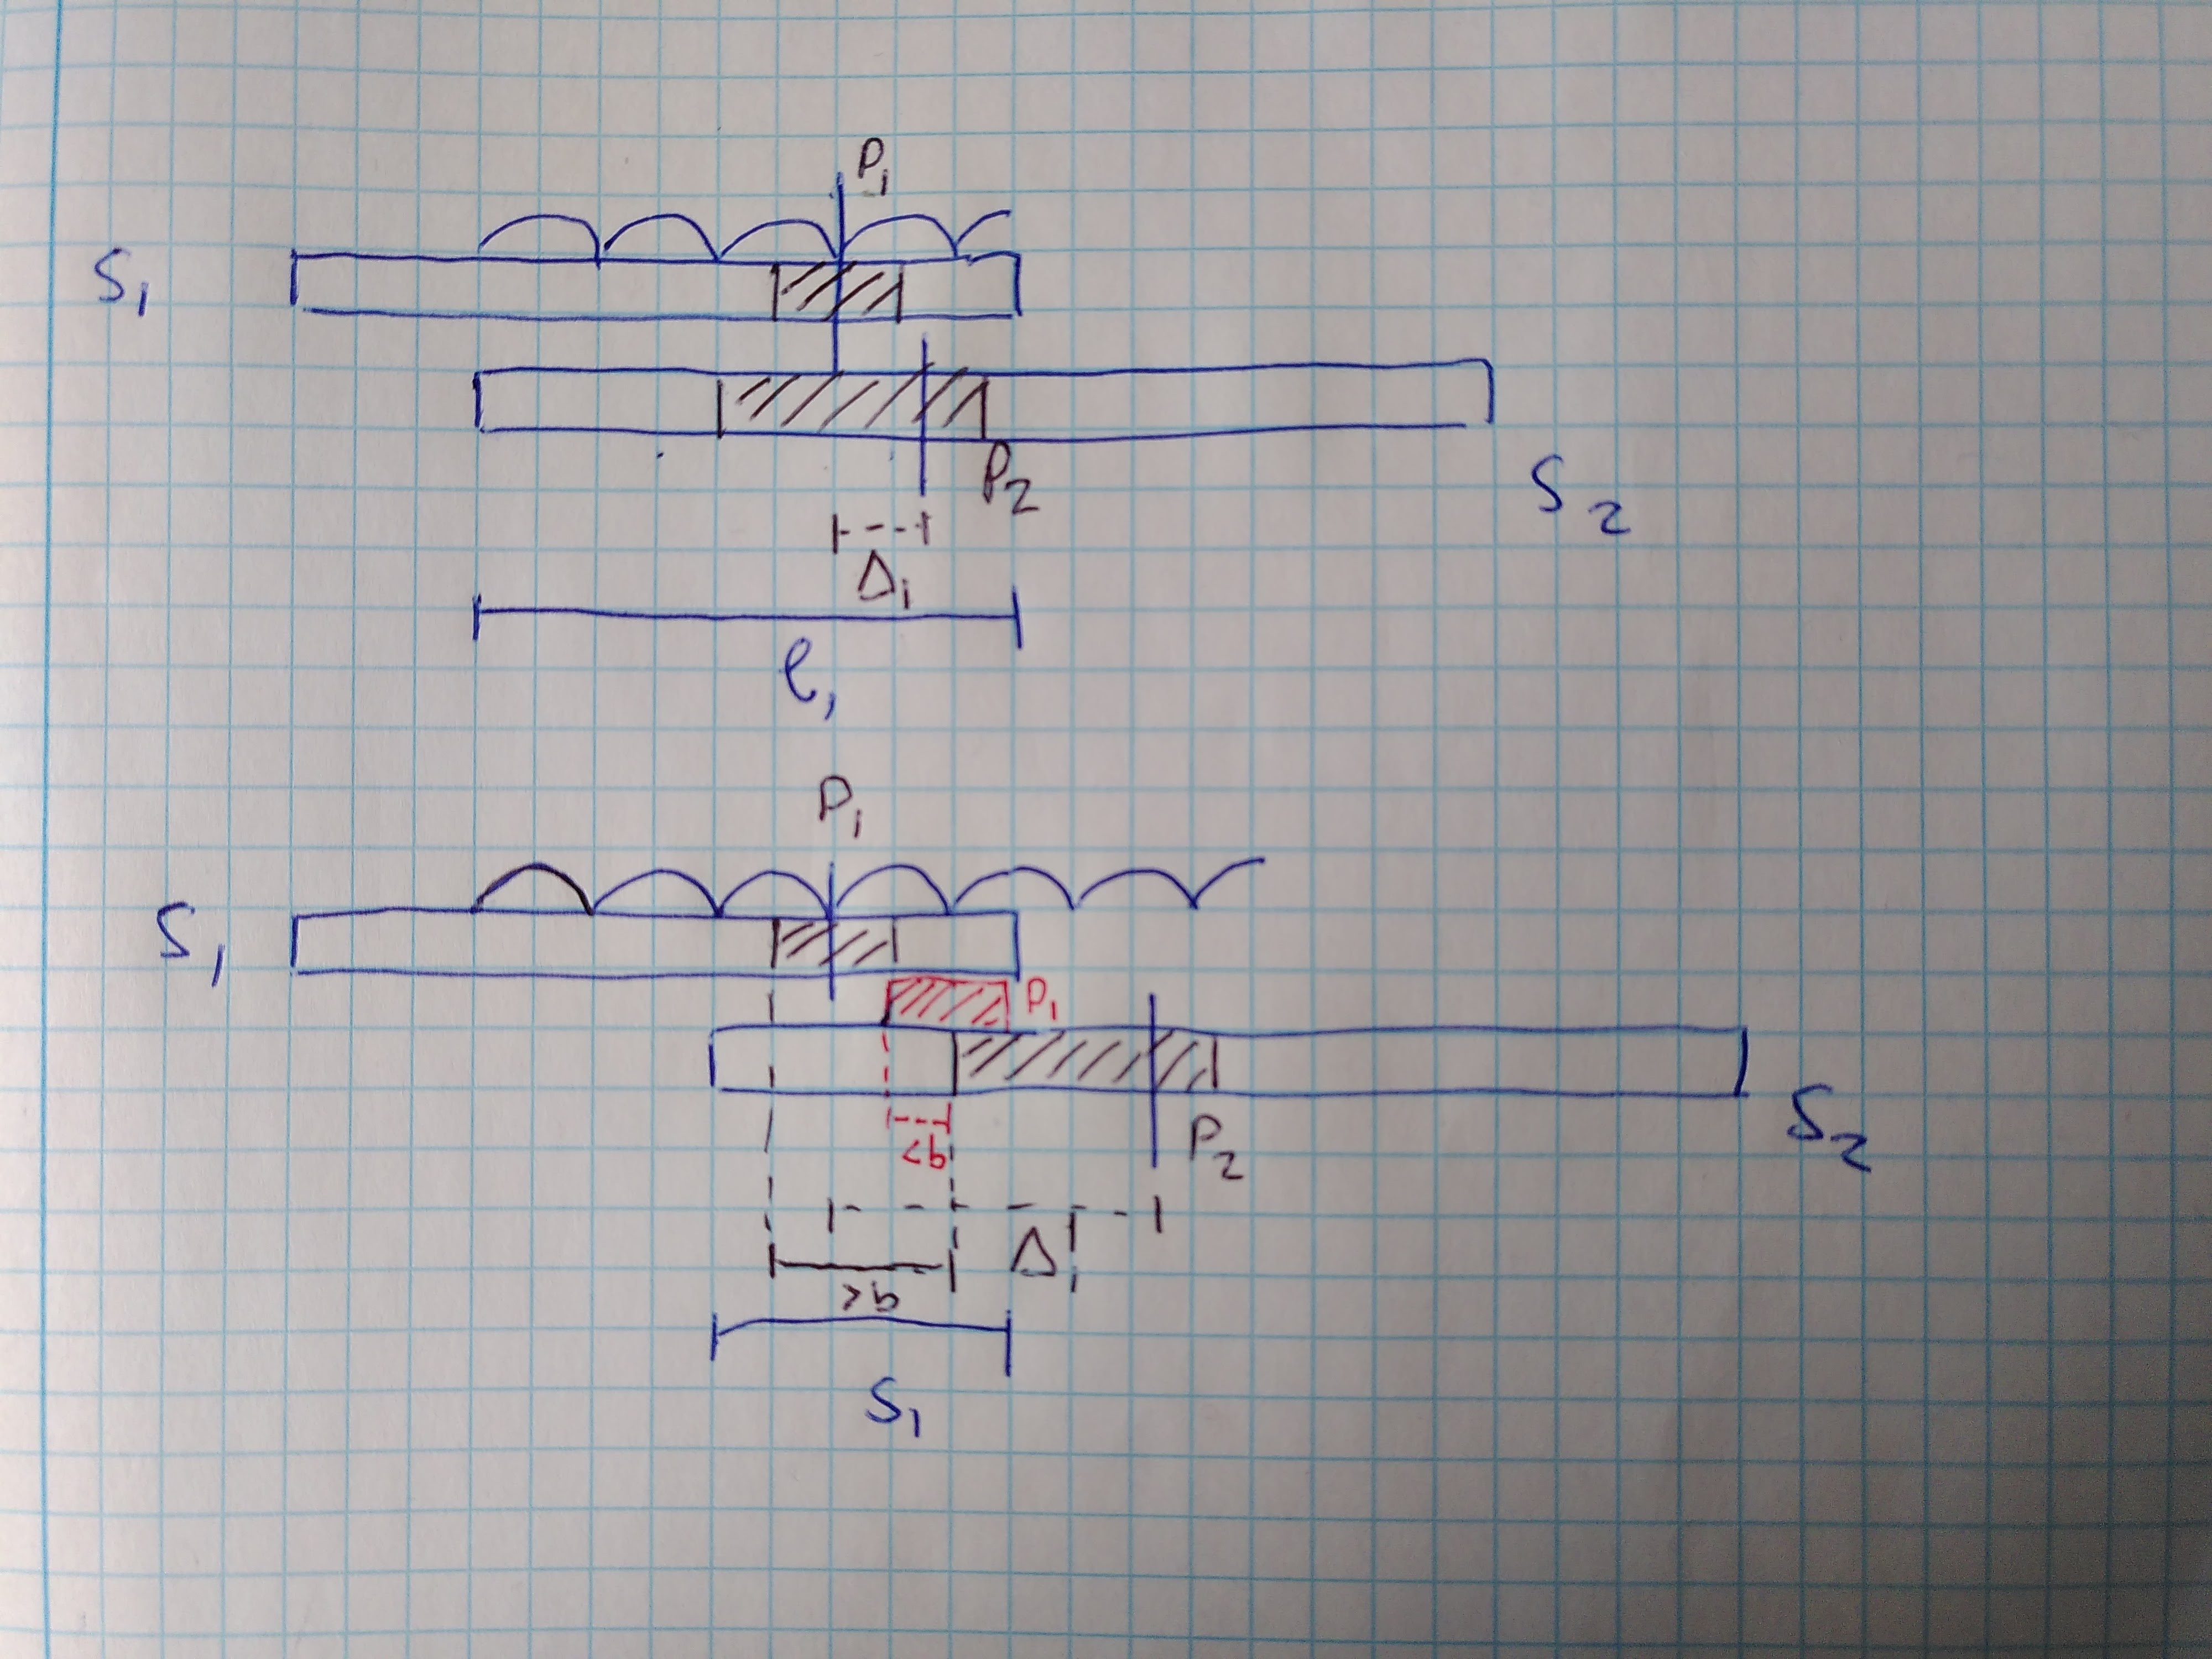 P₁
S₁
P₂
S₂
Δ₁
ℓ₁
P₁
S₁
P₁
<b
P₂
S₂
Δ₁'
>b
S₁